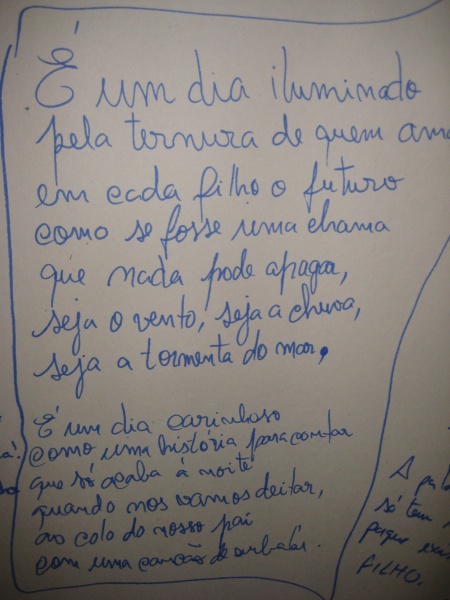 É um dia iluminado
pela ternura de quem ama
em cada filho o futuro
como se fosse uma chama
que nada pode apagar,
seja o vento, seja a chuva,
seja a tormenta do mar.
É um dia carinhoso
como uma história para contar
que só acaba à noite
quando nos vamos deitar,
ao colo do nosso pai
com uma canção de embalar.
A
só tem
porque
FILHO.